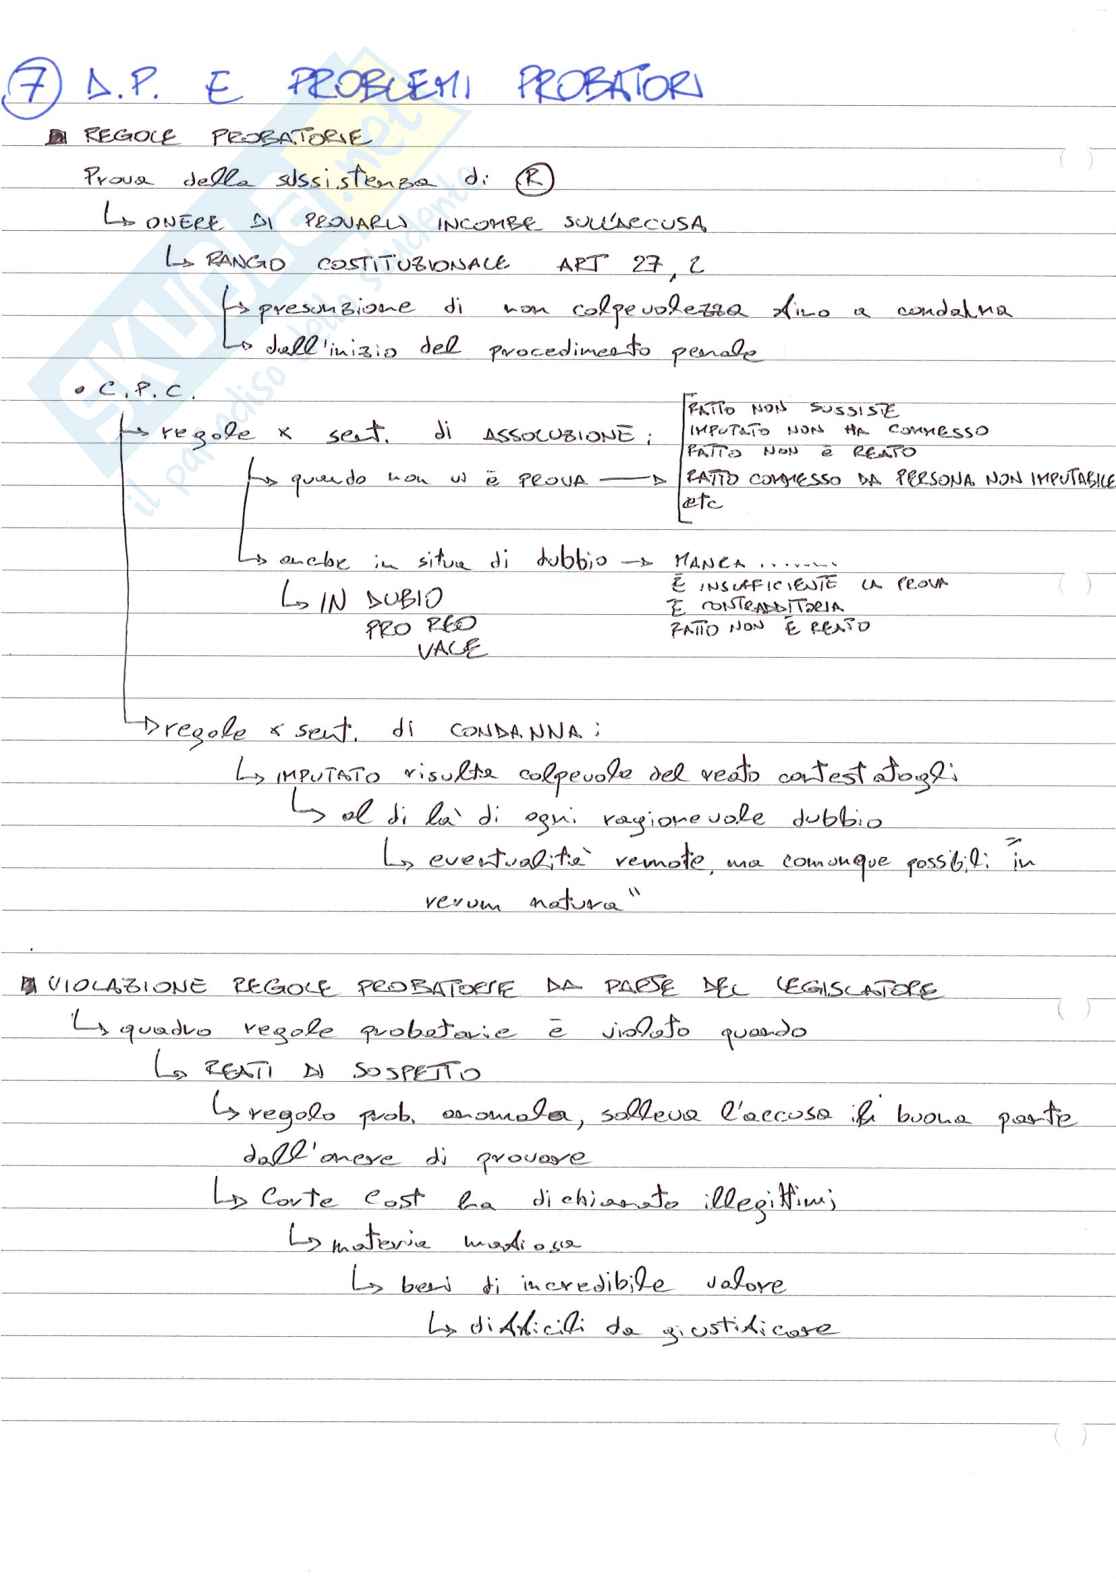 7 D.P. E PROBLEMI PROBATORI
REGOLE PROBATORIE
Prova della sussistenza di R
↳ ONERE DI PROVARLO INCOMBE SULL'ACCUSA
↳ RANGO COSTITUZIONALE ART 27, 2
↳ presunzione di non colpevolezza fino a condanna
↳ dall'inizio del procedimento penale
• C.P.C.
↳ regole x sent. di ASSOLUZIONE:
FATTO NON SUSSISTE
IMPUTATO NON HA COMMESSO
FATTO NON È REATO
↳ quando non vi è PROVA → FATTO COMMESSO DA PERSONA NON IMPUTABILE
etc
↳ anche in situa di dubbio → MANCA .......
È INSUFFICIENTE LA PROVA
↳ IN DUBIO È CONTRADDITORIA
PRO REO FATTO NON È REATO
VALE
↳ regole x sent. di CONDANNA:
↳ IMPUTATO risulta colpevole del reato contestatogli
↳ al di là di ogni ragionevole dubbio
↳ eventualità remote, ma comunque possibili "in
rerum natura"
VIOLAZIONE REGOLE PROBATORIE DA PARTE DEL LEGISLATORE
↳ quadro regole probatorie è violato quando
↳ REATI DI SOSPETTO
↳ regola prob. anomala, solleva l'accusa in buona parte
dall'onere di provare
↳ Corte Cost ha dichiarato illegittimi
↳ materia mafiosa
↳ beni di incredibile valore
↳ difficili da giustificare
SKUOLA.net
il paradiso dello studente